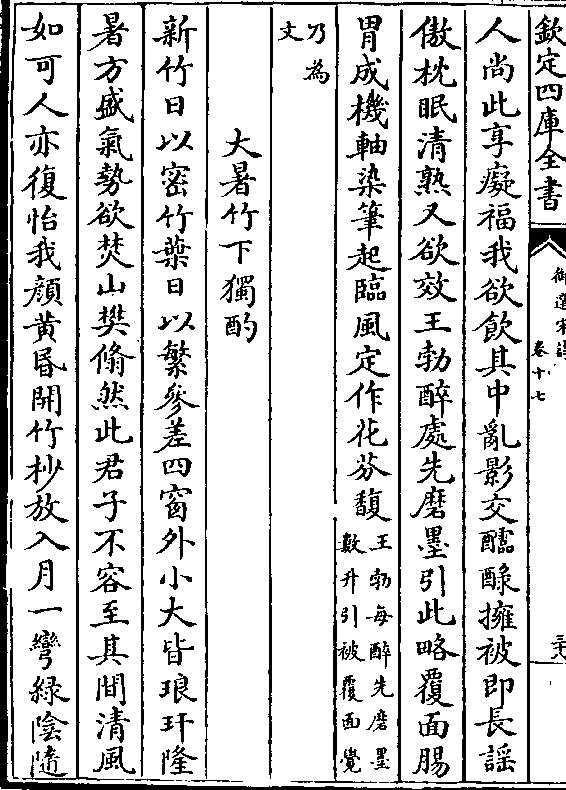 欽定四庫全書
御選宋詩
卷十七
人尚此享癡福我欲飲其中亂影交醽醁擁被即長謡
傲枕眠清熟又欲效王勃醉處先磨墨引此略覆面腸
胃成機軸染筆起臨風定作花芬馥王勃每醉先磨墨
數升引被覆面覺
乃為
文
大暑竹下獨酌
新竹日以密竹葉日以繁參差四窗外小大皆琅玕隆
暑方盛氣勢欲焚山樊翛然此君子不容至其間清風
如可人亦復怡我顔黄昬開竹杪放入月一彎緑陰隨